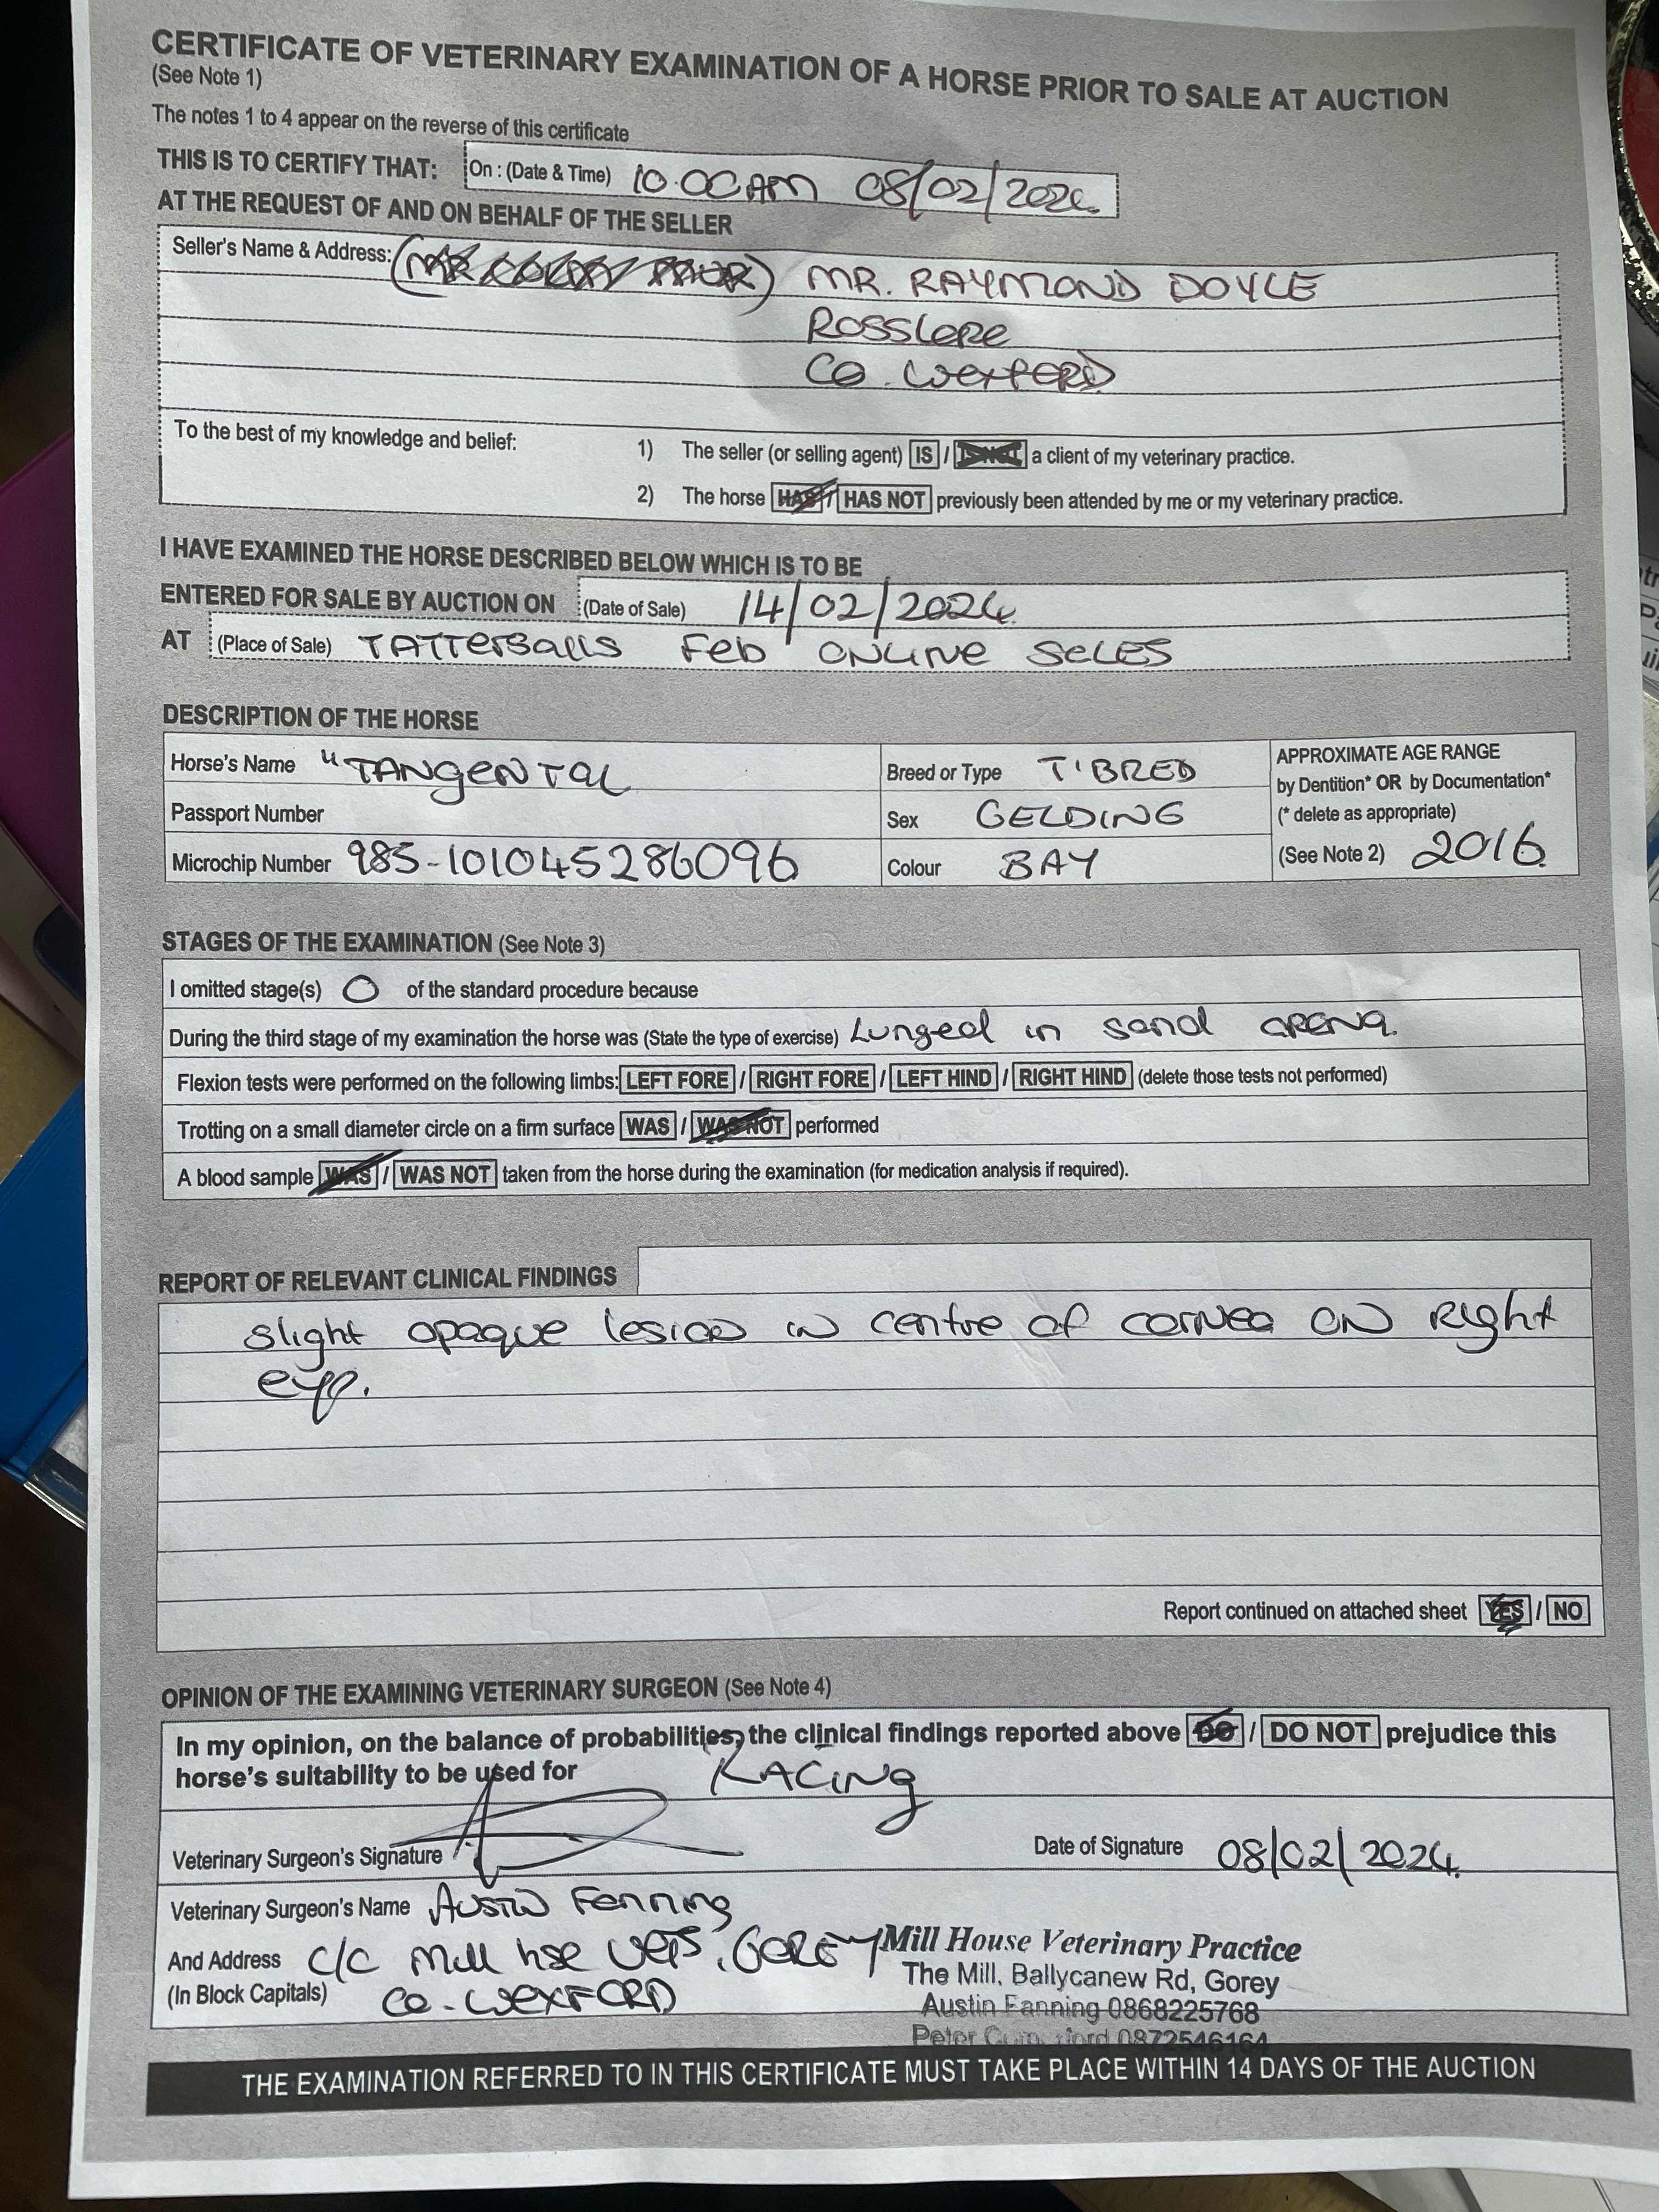 CERTIFICATE OF VETERINARY EXAMINATION OF A HORSE PRIOR TO SALE AT AUCTION
(See Note 1)
The notes 1 to 4 appear on the reverse of this certificate
THIS IS TO CERTIFY THAT: On : (Date & Time) 10.00AM 08/02/2024.
AT THE REQUEST OF AND ON BEHALF OF THE SELLER
Seller's Name & Address: MR. RAYMOND DOYLE
Rosslere
Co. Wexford
To the best of my knowledge and belief: 1) The seller (or selling agent) IS / IS NOT a client of my veterinary practice.
2) The horse HAS / HAS NOT previously been attended by me or my veterinary practice.
I HAVE EXAMINED THE HORSE DESCRIBED BELOW WHICH IS TO BE
ENTERED FOR SALE BY AUCTION ON (Date of Sale) 14/02/2024.
AT (Place of Sale) TATTERSALLS Feb ONLINE SELES
DESCRIPTION OF THE HORSE
Horse's Name "TANGENTAL Breed or Type T'BRED APPROXIMATE AGE RANGE
by Dentition* OR by Documentation*
Passport Number Sex GELDING (* delete as appropriate)
Microchip Number 985-101045286096 Colour BAY (See Note 2) 2016
STAGES OF THE EXAMINATION (See Note 3)
I omitted stage(s) O of the standard procedure because
During the third stage of my examination the horse was (State the type of exercise) Lunged in sand arena.
Flexion tests were performed on the following limbs: LEFT FORE / RIGHT FORE / LEFT HIND / RIGHT HIND (delete those tests not performed)
Trotting on a small diameter circle on a firm surface WAS / WAS NOT performed
A blood sample WAS / WAS NOT taken from the horse during the examination (for medication analysis if required).
REPORT OF RELEVANT CLINICAL FINDINGS
slight opaque lesion in centre of cornea ON Right
eye.
Report continued on attached sheet YES / NO
OPINION OF THE EXAMINING VETERINARY SURGEON (See Note 4)
In my opinion, on the balance of probabilities, the clinical findings reported above DO / DO NOT prejudice this
horse's suitability to be used for RACING
Veterinary Surgeon's Signature Date of Signature 08/02/2024.
Veterinary Surgeon's Name Austin Fanning
And Address C/O Mill hse Vets, GOREY
(In Block Capitals) Co-WEXFORD
Mill House Veterinary Practice
The Mill, Ballycanew Rd, Gorey
Austin Fanning 0868225768
Peter 0872546164
THE EXAMINATION REFERRED TO IN THIS CERTIFICATE MUST TAKE PLACE WITHIN 14 DAYS OF THE AUCTION